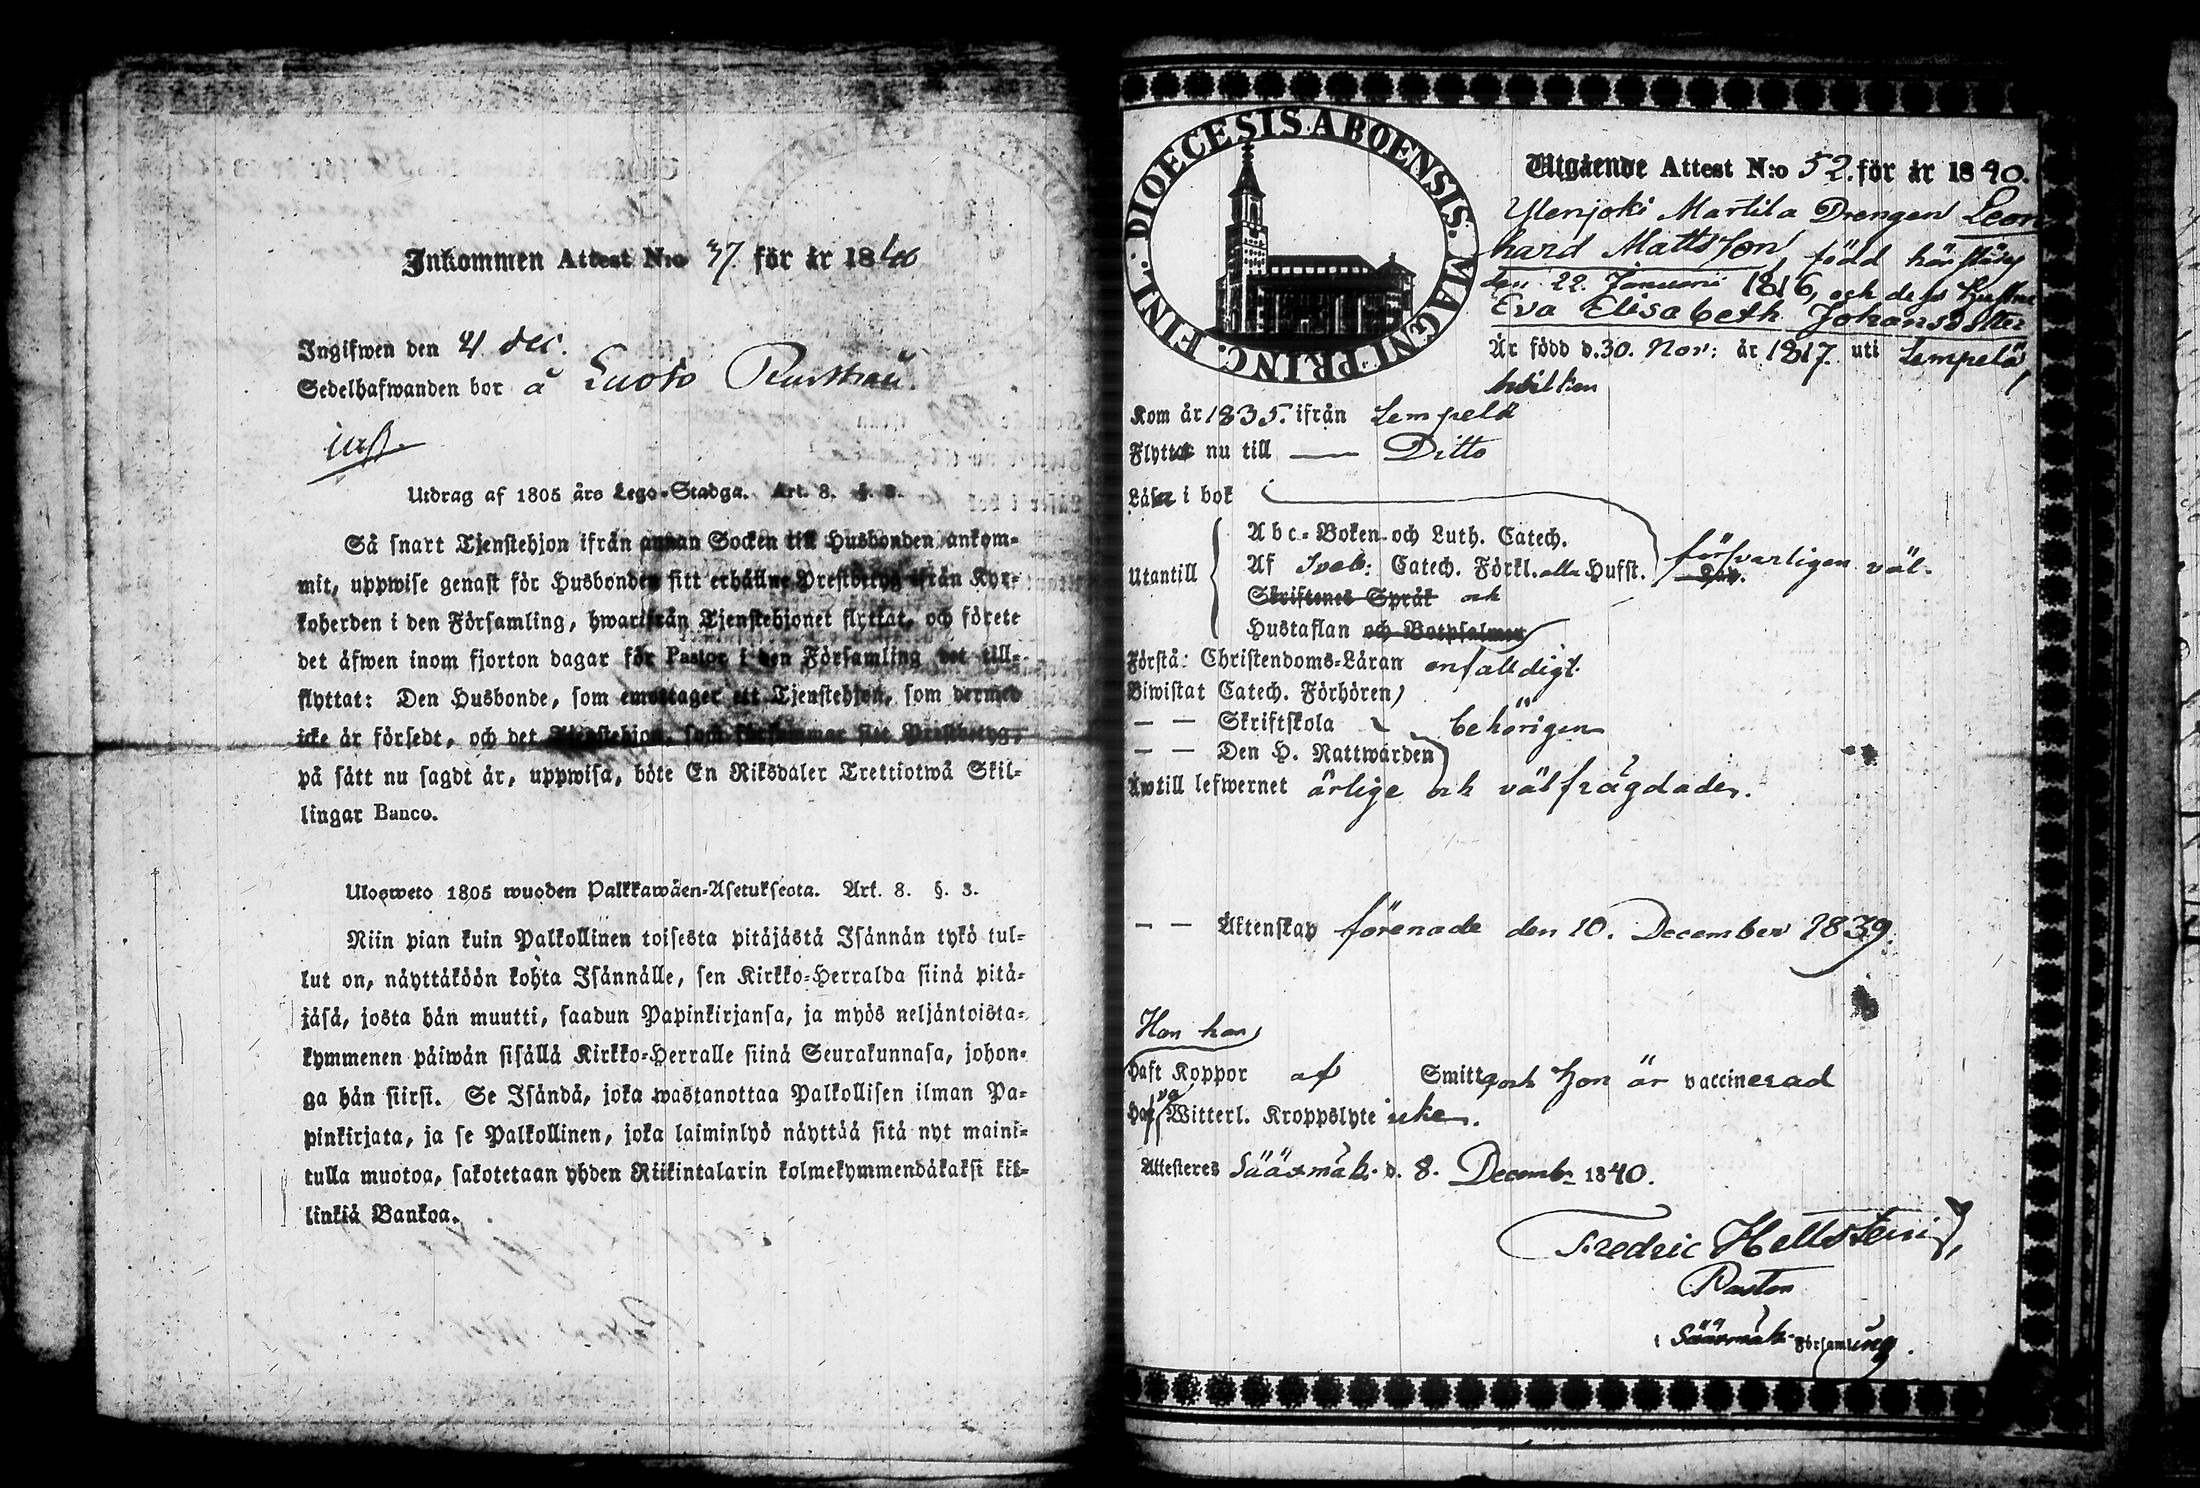 Inkommen Attest N:o 37 för år 1840
Ingifwen den 21 dec.
Sedelhafwanden bor å Luoto
inst.
Utdrag af 1805 års Lego-Stadga. Art. 8. §. 3.
Så snart Tjenstehjon ifrån annan Socken till Husbonden ankom-
mit, uppwise genast för Husbonden sitt erhållne Prestbetyg ifrån Kyr-
koherden i den Församling, hwarifrån Tjenstehjonet flyttat, och förete
det äfwen inom fjorton dagar för Pastor i den Församling det till-
flyttat: Den Husbonde, som emottager ett Tjenstehjon, som dermed
icke är försedt, och det Tjenstehjon, som försummar sitt Prestbetyg,
på sätt nu sagdt är, uppwisa, böte En Riksdaler Trettiotwå Skil-
lingar Banco.
Ulosweto 1805 wuoden Palkkawäen-Asetuksesta. Art. 8. §. 3.
Niin pian kuin Palkollinen toisesta pitäjästä Isännän tykö tul-
lut on, näyttäköön kohta Isännälle, sen Kirkko-Herralda siinä pitä-
jäsä, josta hän muutti, saadun Papinkirjansa, ja myös neljäntoista-
kymmenen päiwän sisällä Kirkko-Herralle siinä Seurakunnasa, johon-
ga hän siirsi. Se Isändä, joka wastanottaa Palkollisen ilman Pa-
pinkirjata, ja se Palkollinen, joka laiminlyö näyttää sitä nyt maini-
tulla muotoa, sakotetaan yhden Riikintalarin kolmekymmendäkaksi kil-
linkiä Bankoa.
DIOECESIS ABOENSIS. MAGNI PRINC. FINL.
Utgående Attest N:o 52. för år 1840.
Ylenjoki Martila Drengen Leon
hard Mattsson, född härstädes
den 22 Januarii 1816, och dess hustru
Eva Elisabeth Johansdotter
Är född d. 30. Nov: år 1817. uti Lempelä,
hvilken
Kom år 1835. ifrån Lempelä
Flyttar nu till — Ditto
Läsa i bok
Abc-Boken och Luth. Catech.
Utantill Af Sveb: Catech. Förkl. alla Hufst. försvarligen väl.
Skriftenes Språk och
Hustaflan och Botpsalmer
Förstå: Christendoms-Läran enfalldigt.
Biwistat Catech. Förhören,
— — Skriftskola behörigen
— — Den H. Nattwarden
Äro till lefwernet ärlige och välfrägdade.
— — Äktenskap förenade den 10. December 1839.
Han har
Haft Koppor af Smitta och hon är vaccinerad
Hafva Witterl. Kroppslyte icke.
Attesteres Sääxmäki d. 8. Decemb. 1840.
Fredric Hellsteni
Pastor
i Sääxmäki Församling.